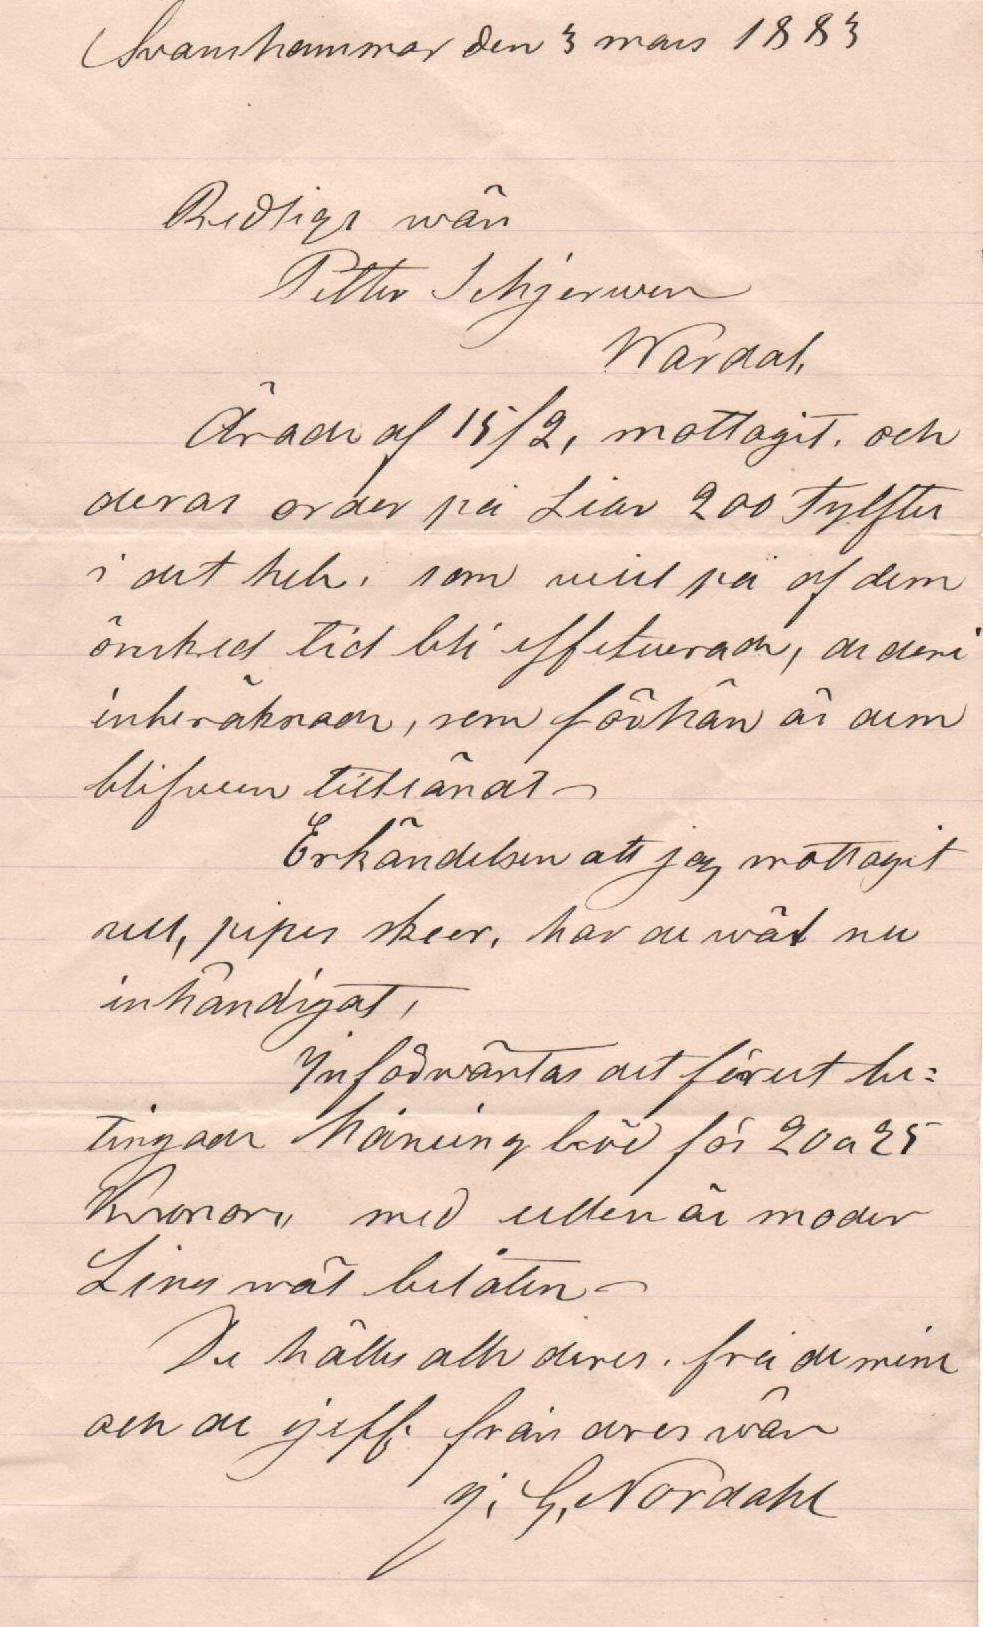 Svanshammar den 3 mars 1883
Redlige wän
Petter Schjerwen
Wärdal.
Ärade af 15/2, mottagit. och
deras order på Liar 200 Tylfter
i det hela. som skall på af dem
önsked tid bli effetuerade, de deri
inberäknade, som förhän är dem
blifven tillsändt
Erkändelsen att jag mottagit
ull, pipes skeer, har de wäl nu
inhändigat,
Yn förwäntas det förut be=
tingade Håning bröd för 20 a 25
Kronor,, med ullen är moder
Lines wäl belåten
De hälles alla deres. frå de mine
och de gjeff. från dres wän
J. G. Nordahl